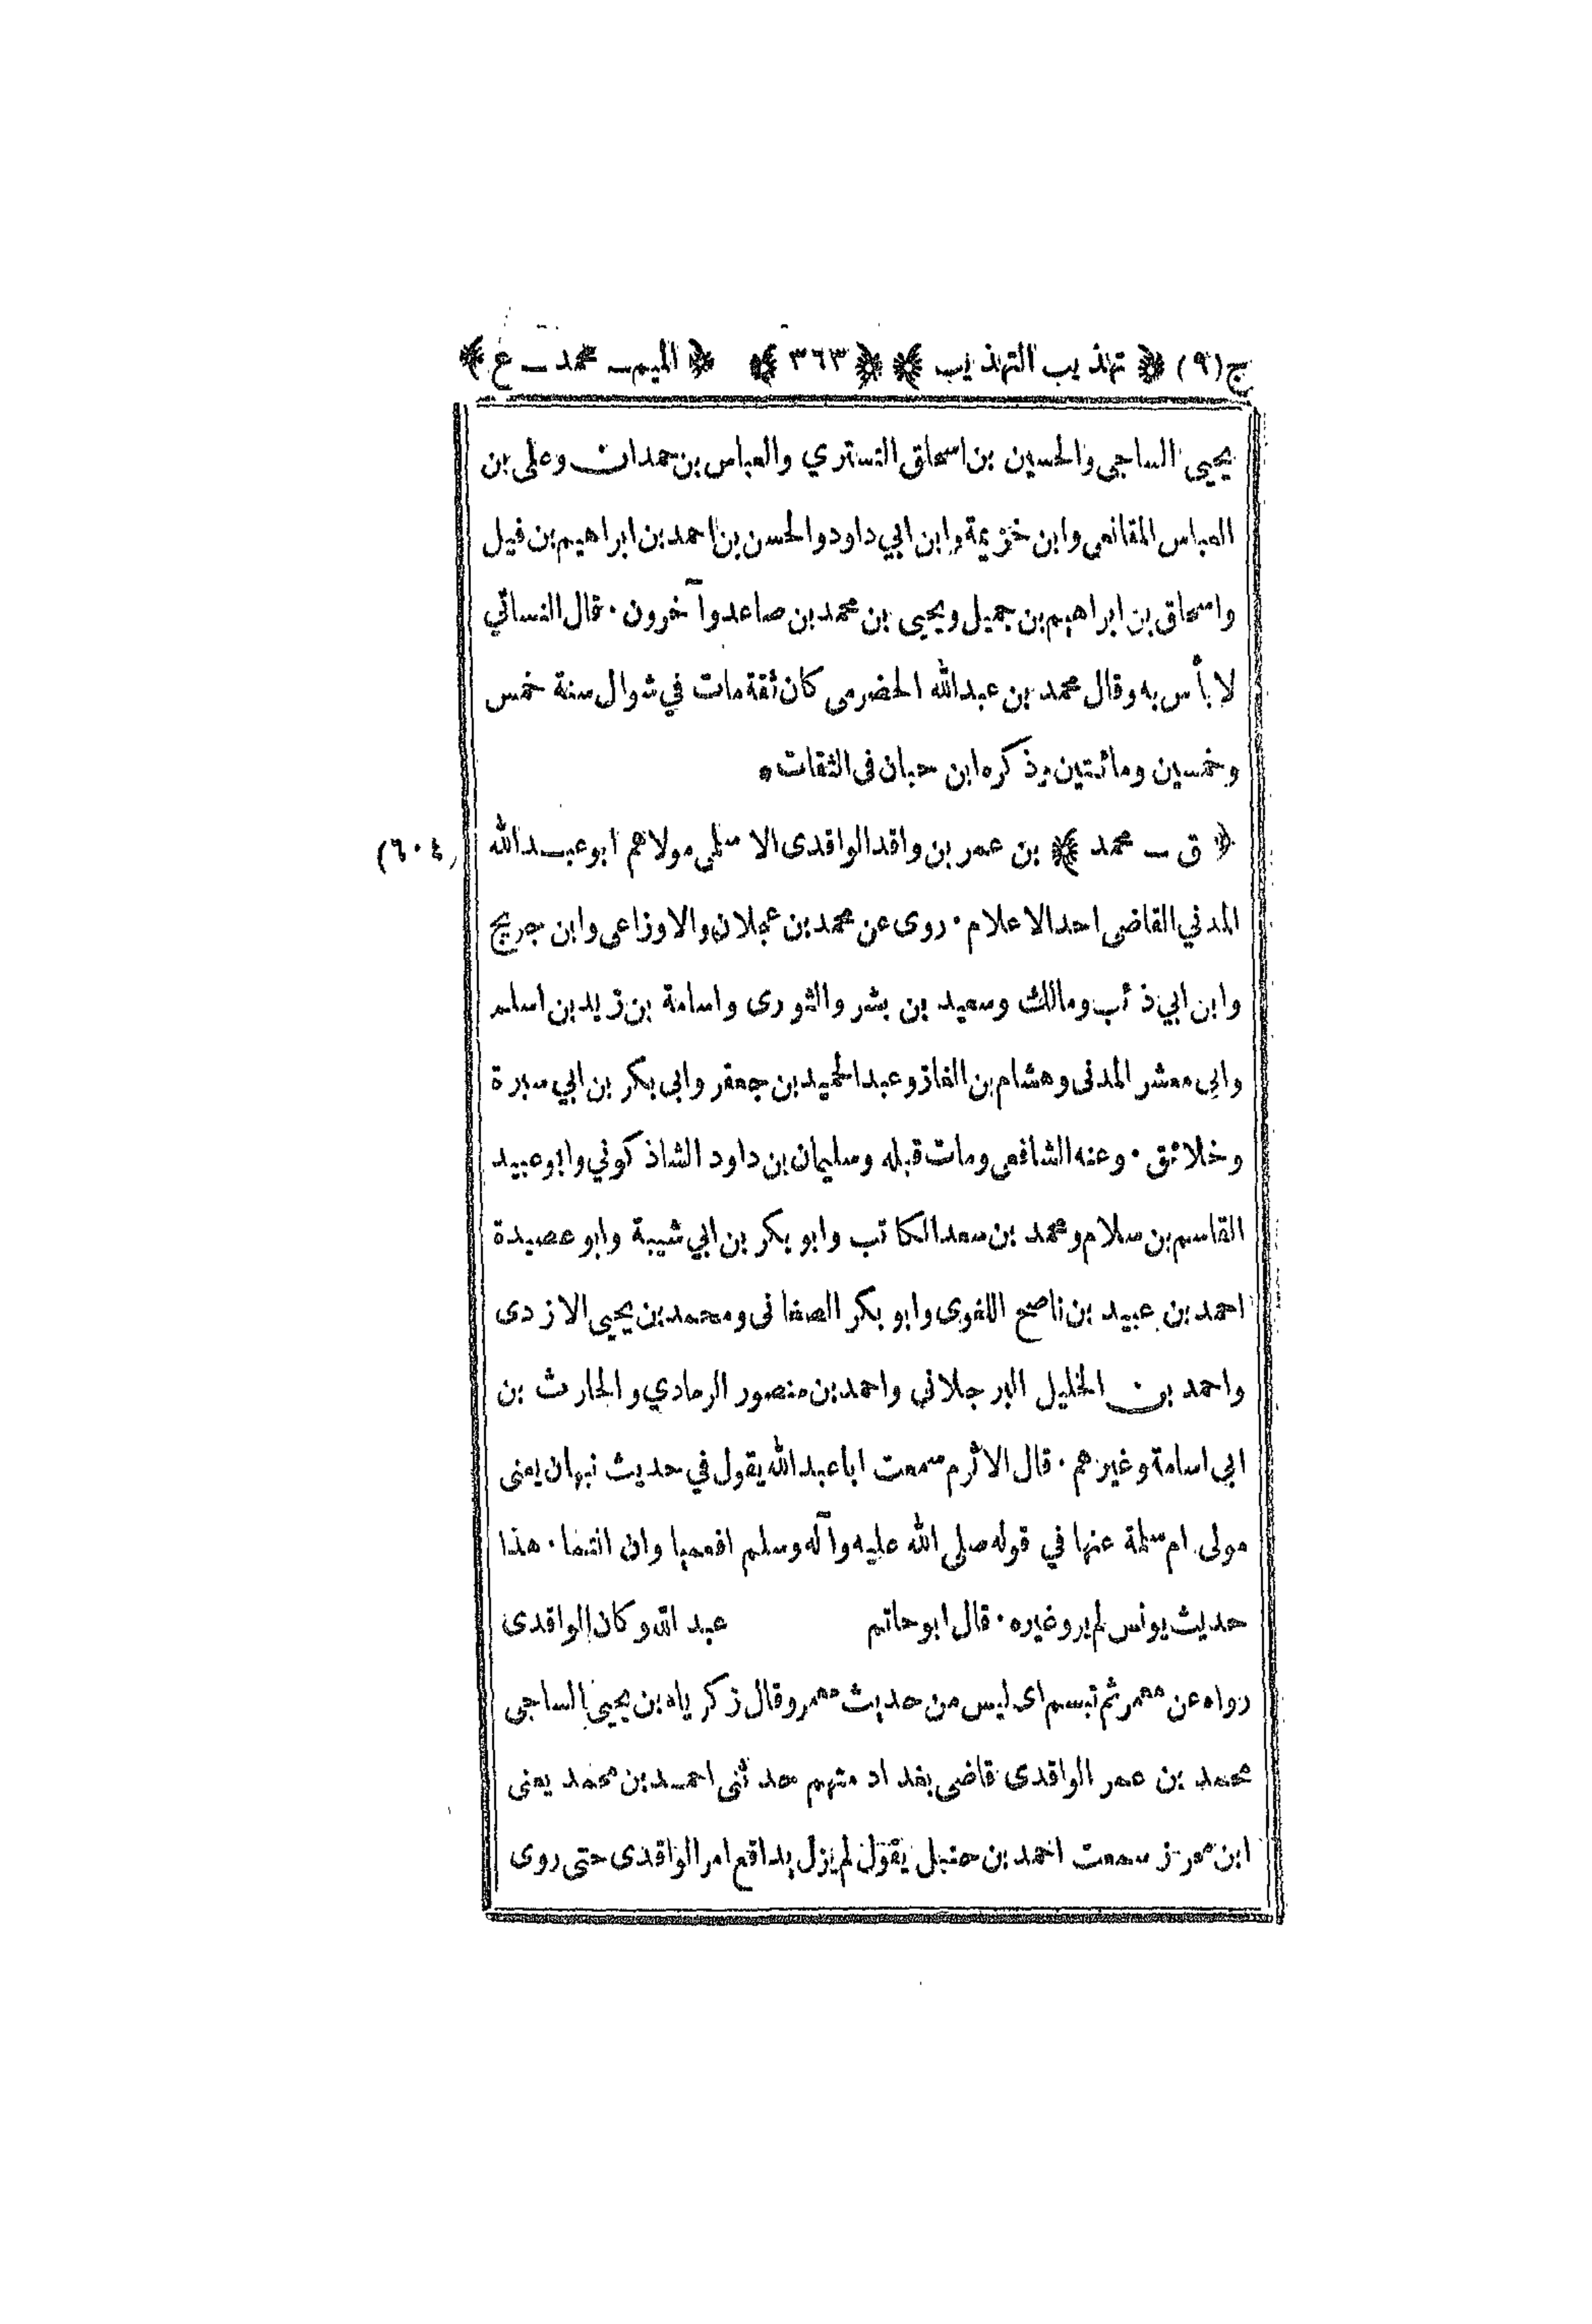 ج(٩) ﴿ تهذيب التهذيب ﴾ ﴿٣٦٣﴾ ﴿ الميم ـ محمد ـ ع ﴾
يحيى الساجى والحسين بن اسحاق التستري والعباس بن حمدان وعلى بن
العباس المقانعى وابن خزيمة وابن ابي داود والحسن بن احمد بن ابراهيم بن فيل
واسحاق بن ابراهيم بن جميل ويحيى بن محمد بن صاعد وآخرون ٠ قال النسائي
لا بأس به وقال محمد بن عبدالله الحضرمى كان ثقة مات في شوال سنة خمس
وخمسين ومائتين وذكره ابن حبان فى الثقات ٠
﴿ ق ـ محمد ﴾ بن عمر بن واقد الواقدى الاسلمى مولاهم ابو عبدالله (٦٠٤)
المدني القاضى احد الاعلام ٠ روى عن محمد بن عجلان والاوزاعى وابن جريج
وابن ابي ذئب ومالك وسعيد بن بشر والثورى واسامة بن زيد بن اسلم
وابى معشر المدنى وهشام بن الغاز وعبد الحميد بن جعفر وابى بكر بن ابي سبرة
وخلائق ٠ وعنه الشافعى ومات قبله وسليمان بن داود الشاذكوني وابو عبيد
القاسم بن سلام ومحمد بن سعد الكاتب وابو بكر بن ابي شيبة وابو عصيدة
احمد بن عبيد بن ناصح اللغوى وابو بكر الصغانى ومحمد بن يحيى الازدى
واحمد بن الخليل البرجلاني واحمد بن منصور الرمادي والحارث بن
ابى اسامة وغيرهم ٠ قال الاثرم سمعت ابا عبدالله يقول في حديث نبهان يعنى
مولى ام سلمة عنها في قوله صلى الله عليه وآله وسلم افعميا وان انتما ٠ هذا
حديث يونس لم يروغيره ٠ قال ابو حاتم عبد الله وكان الواقدى
رواه عن معمر ثم تبسم اى ليس من حديث معمر وقال زكرياء بن يحيى الساجى
محمد بن عمر الواقدى قاضى بغداد متهم حدثنى احمد بن محمد يعنى
ابن محرز سمعت احمد بن حنبل يقول لم يزل يدافع امر الواقدى حتى روى